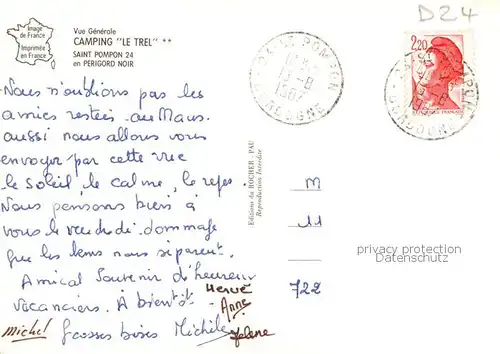 D24
Image de France
Imprimée en France
Vue Générale
CAMPING "LE TREL" **
SAINT POMPON 24
en PERIGORD NOIR
24 ST POMPON
-8
1987
DORDOGNE
2,20
REPUBLIQUE FRANÇAISE
Nous n'oublions pas les
amies restées au Mans.
aussi nous allons vous
envoyer par cette vue
le soleil, le calme, le repos.
Nous pensons bien à
vous le vendredi. dommage
que les kms nous séparent.
Amical Souvenir d'heureux
vacanciers. A bientôt. Hervé
Anne
michel Grosses bises Michèle
Helene
Editions du ROCHER - PAU
Reproduction Interdite
M
11
722
privacy protection
Datenschutz